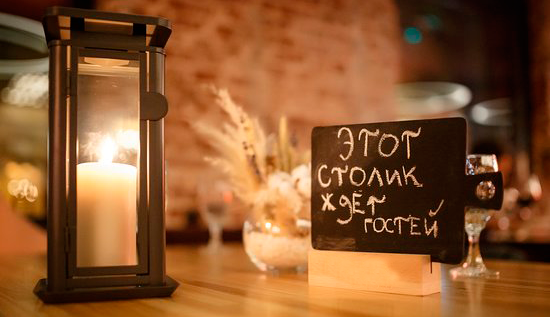 ЭТОТ
СТОЛИК
ЖДЁТ
ГОСТЕЙ